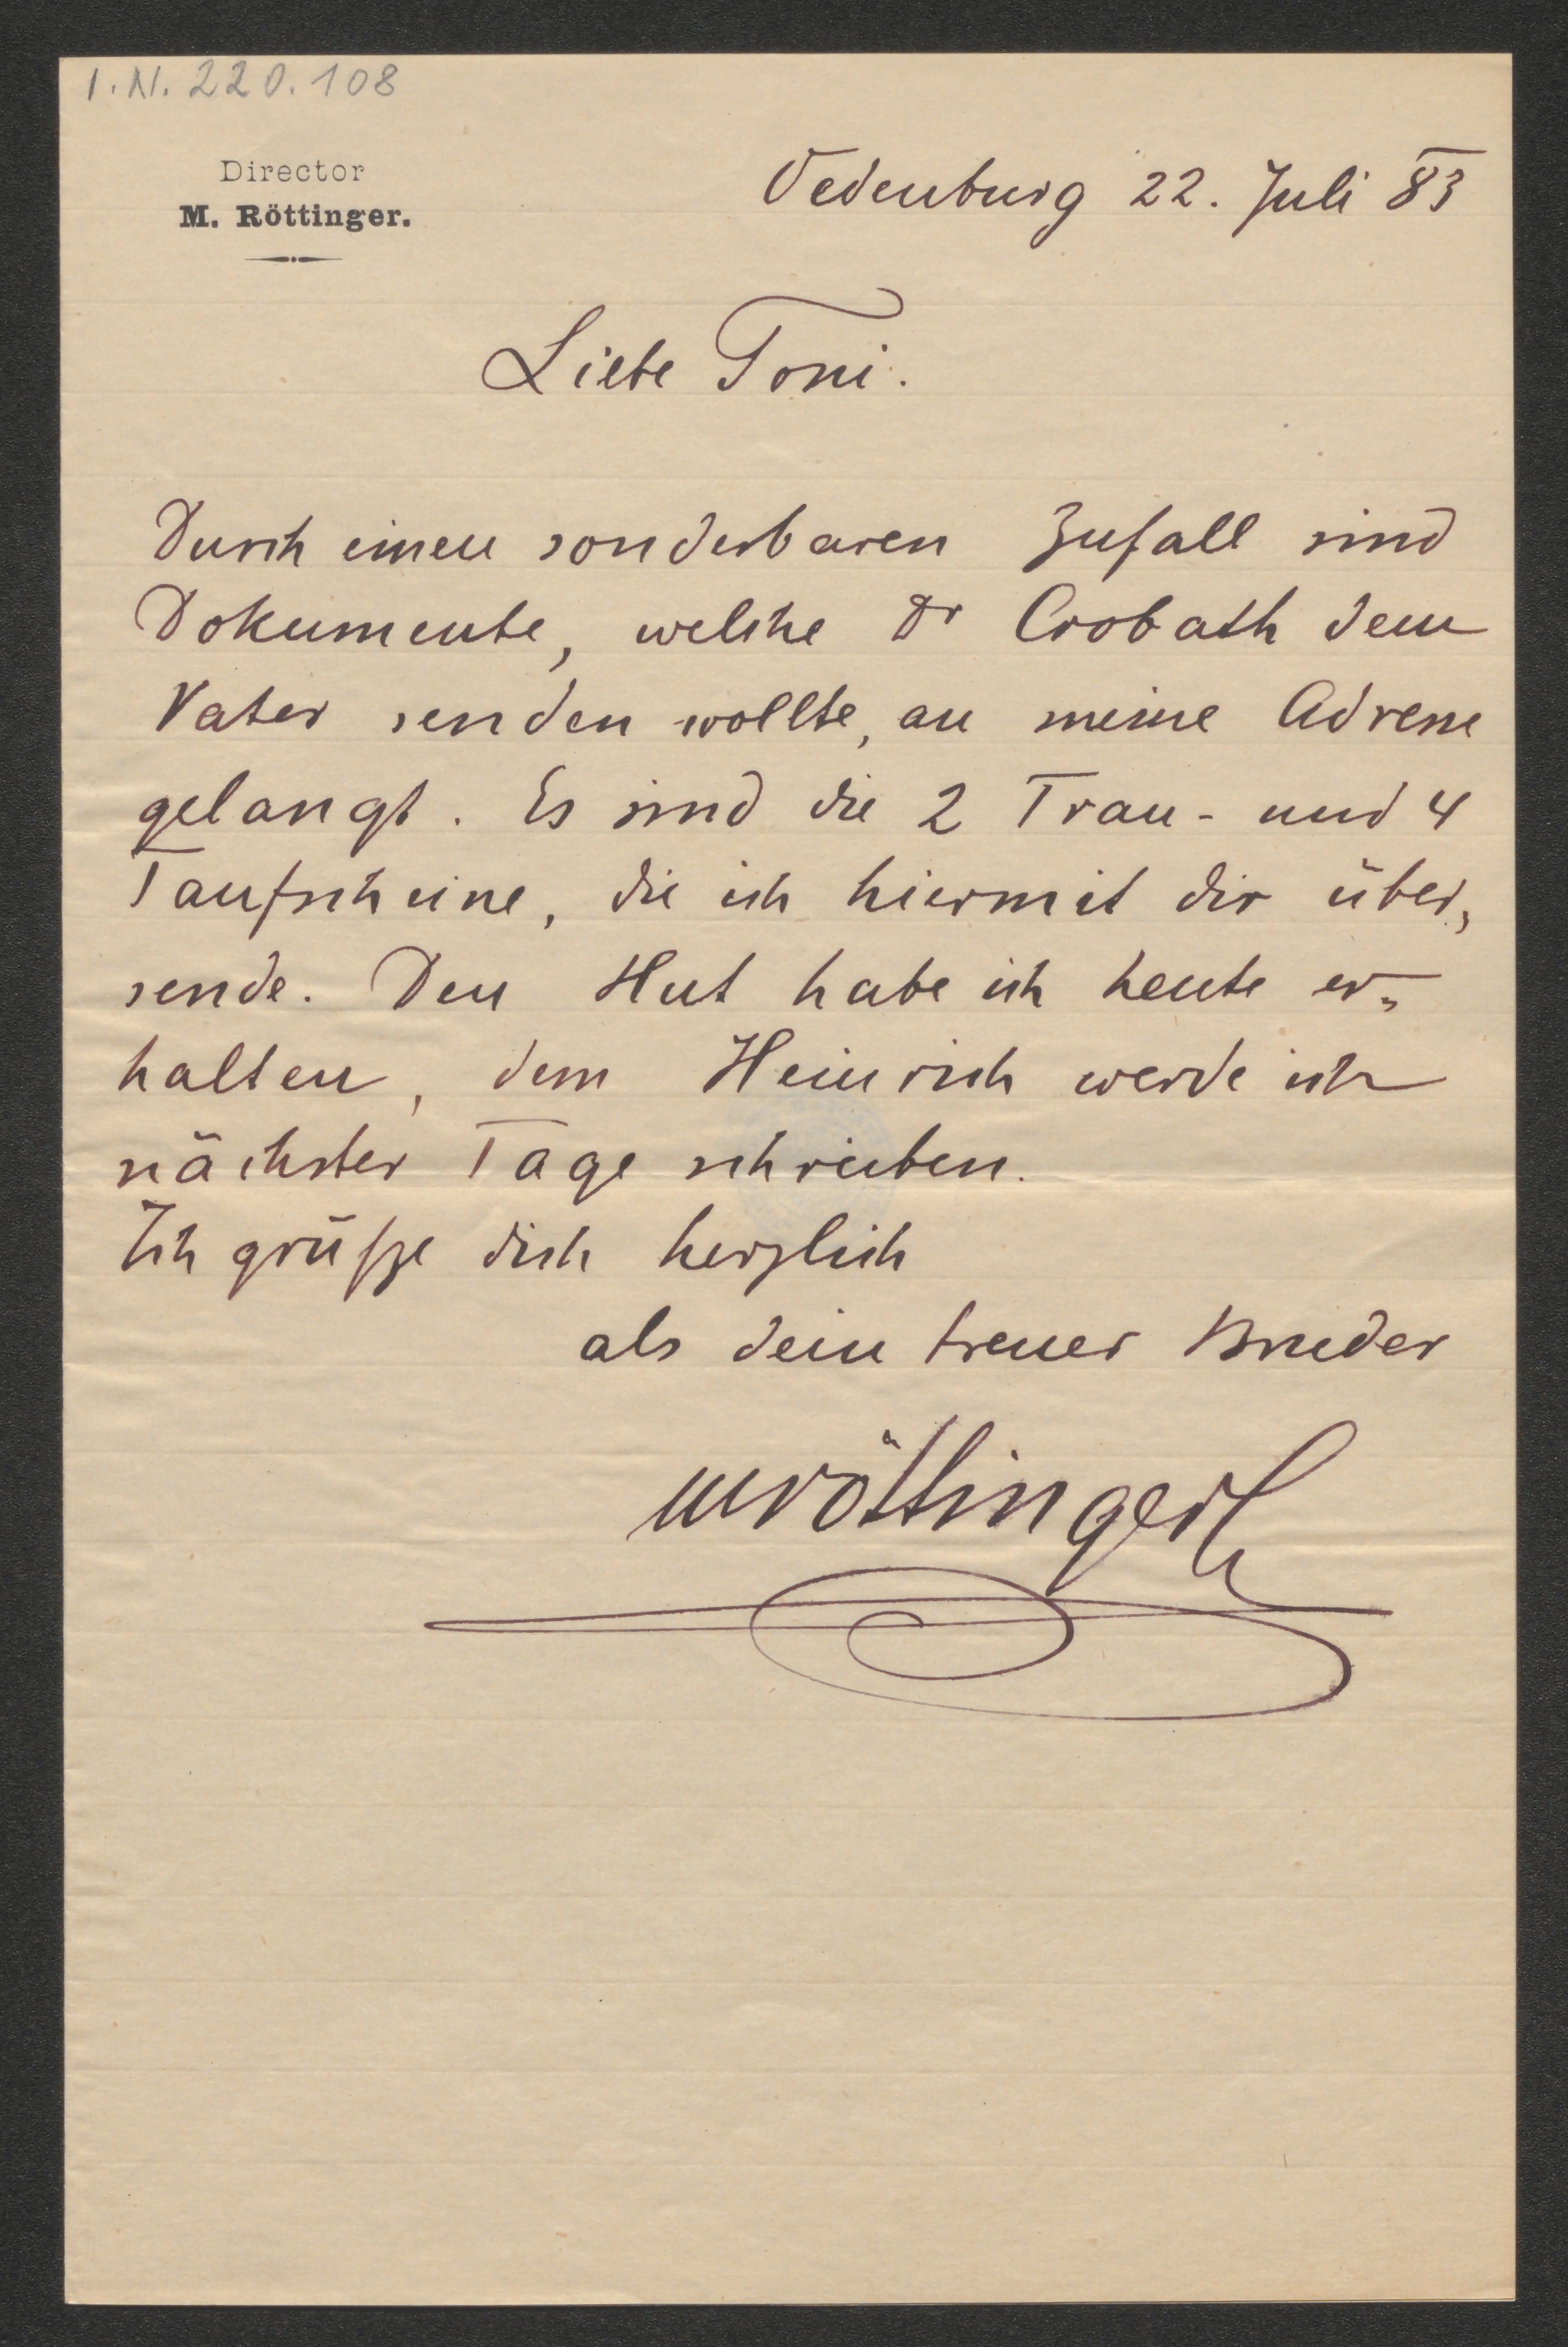 I.N. 220.108
Director
M. Röttinger.
Oedenburg 22. Juli 83
Liebe Toni.
Durch einen sonderbaren Zufall sind
Dokumente, welche Dr Crobath dem
Vater senden wollte, an meine Adresse
gelangt. Es sind die 2 Trau- und 4
Taufscheine, die ich hiermit dir über,
sende. Den Hut habe ich heute er„
halten, dem Heinrich werde ich
nächster Tage schreiben.
Ich grüße dich herzlich
als dein treuer Bruder
MRöttinger